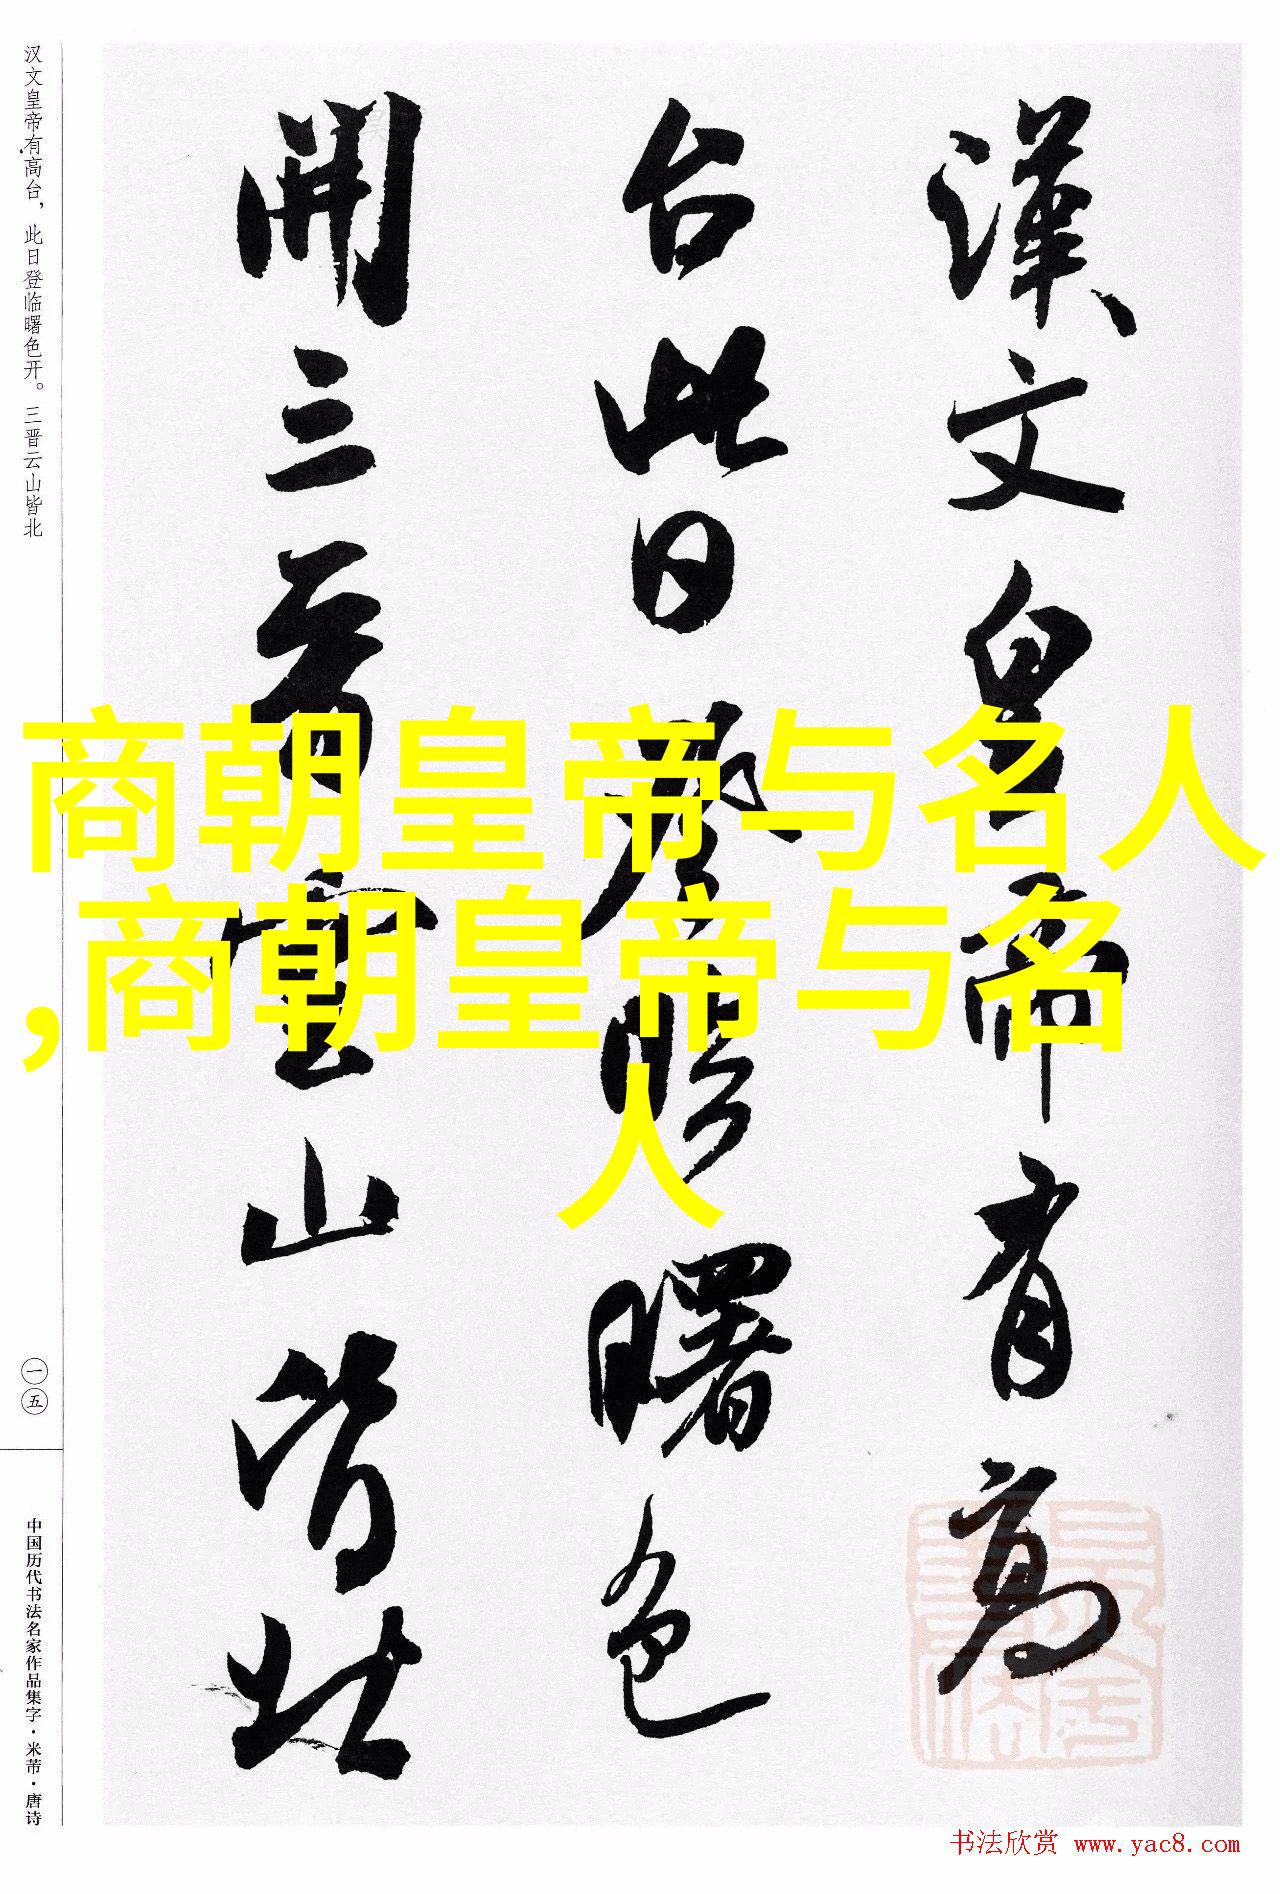 漢文皇帝有高
台此日登臨曙色
開三晉雲山皆北
汉文皇帝有高台，此日登临曙色开。三晋云山皆北
商朝皇帝与名人
,商朝皇帝与名
人
一五
中国历代书法名家作品集字·米芾·唐诗
书法欣赏 www.yac8.com